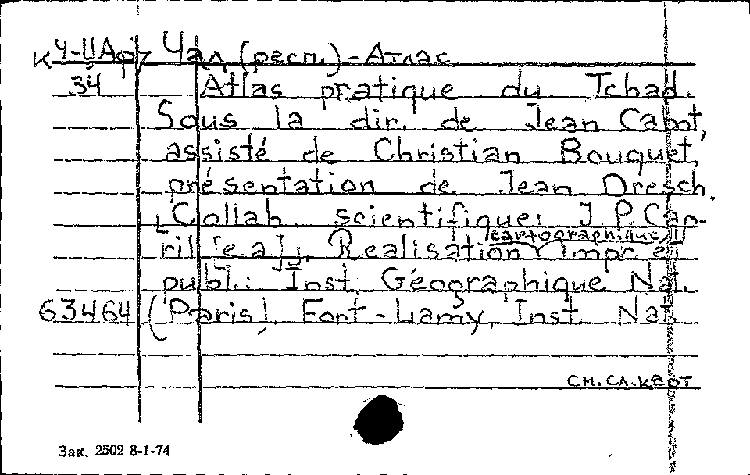 К Ч-ЦАфр Чад (респ.) - Атлас
34 Atlas pratique du Tchad.
Sous la dir. de Jean Cabot,
assisté de Christian Bouquet,
présentation de Jean Dresch.
[Collab scientifique: J. P. Car-
ril [e.a.]. Realisation cartographique, impr. et
publ.: Inst. Géographique Nat.
63464 (Paris). Fort-Lamy, Inst. Nat.
См. сл. к-вот
Зак. 2502 8-1-74